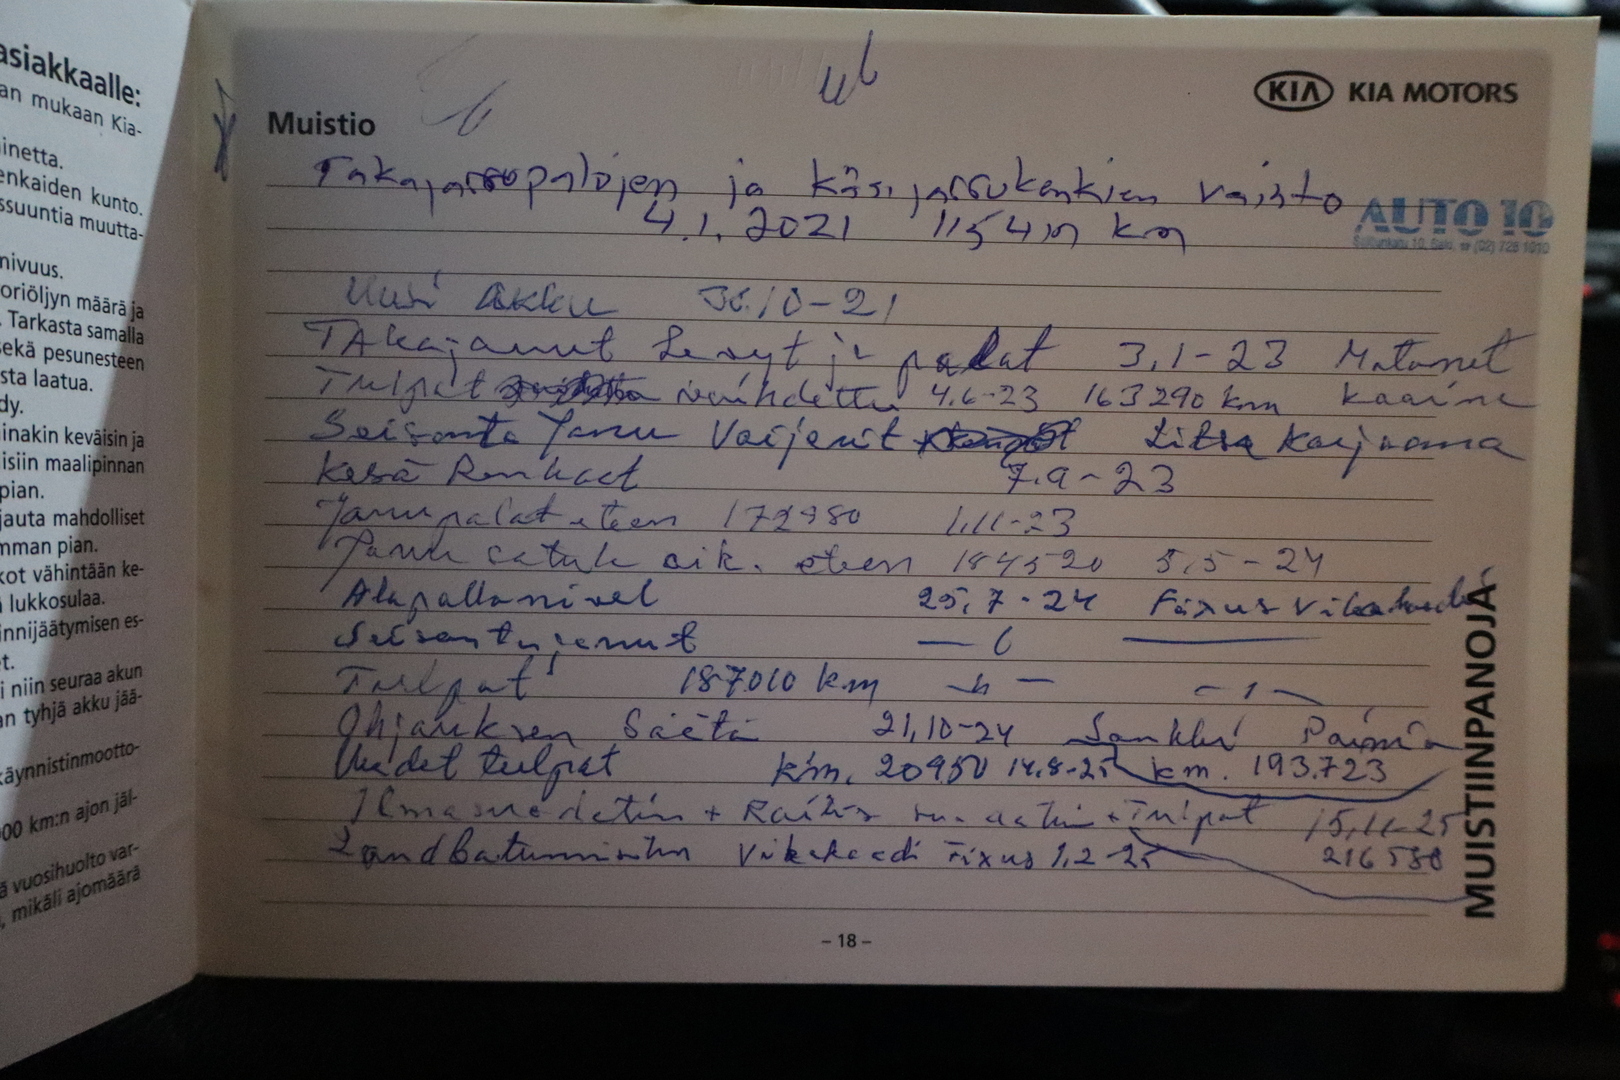 asiakkaalle:
an mukaan Kia-
inetta.
enkaiden kunto.
ssuuntia muutta-
nivuus.
oriöljyn määrä ja
. Tarkasta samalla
sekä pesunesteen
sta laatua.
dy.
inakin keväisin ja
isiin maalipinnan
pian.
jauta mahdolliset
mman pian.
kot vähintään ke-
lukkosulaa.
innijäätymisen es-
t.
i niin seuraa akun
an tyhjä akku jää-
käynnistinmootto-
00 km:n ajon jäl-
ä vuosihuolto var-
, mikäli ajomäärä
KIA KIA MOTORS
Muistio
Takajarrupalojen ja käsijarrukenkien vaihto
4.1.2021 km
AUTO 10
Uusi akku 10-21
Takajarrut Levyt ja palat 3.1-23
Tulpat vaihdettu 4.6-23 163290 km Kaarina
Seisonta Jarru Vaijerit Korjaama
Kesä Renkaat 7.9-23
Jarrupalat eteen 172980 1.11-23
Jarru satula oik. eteen 184520 5.5-24
Alapallonivel 25.7-24 Fixus
Seisontajarrut
Tulpat 187010 km
Ohjauksen Säätö 21.10-24 Paimio
Uudet tulpat km. 20950 14.8-25 km. 193.723
+ Tulpat 15.11-25
Fixus 1.2-25 216580
MUISTIINPANOJA
– 18 –